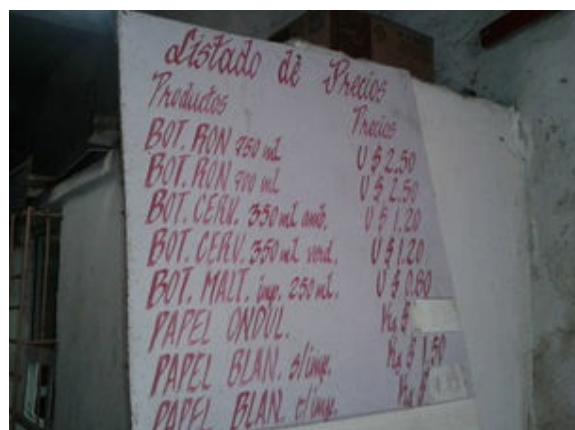 Listado de Precios
Productos Precios
BOT. RON 750 ml U $ 2.50
BOT. RON 700 ml U $ 2.50
BOT. CERV. 330 ml amb. U $ 1.20
BOT. CERV. 350 ml verd. U $ 1.20
BOT. MALT. imp. 250 ml. U $ 0.60
PAPEL ONDUL. Kg $
PAPEL BLAN. s/imp. Kg $ 1.50
PAPEL BLAN. c/imp. Kg $